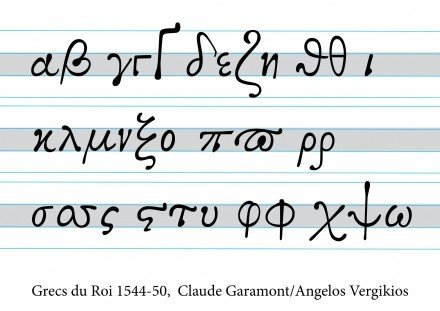 αβ γΓΓ δεζη ϑθ ι
κλμνξο πϖ ρρ
σσςς ϛτυ φφ χψω
Grecs du Roi 1544-50, Claude Garamont/Angelos Vergikios